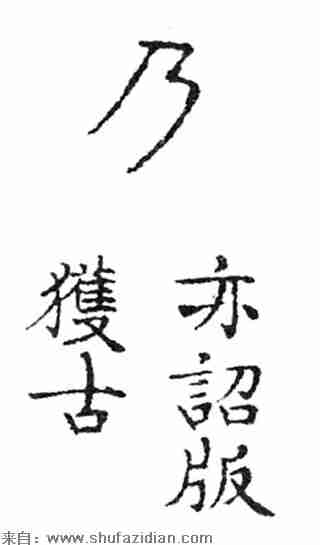 乃
亦詔版
獲古
来自：www.shufazidian.com